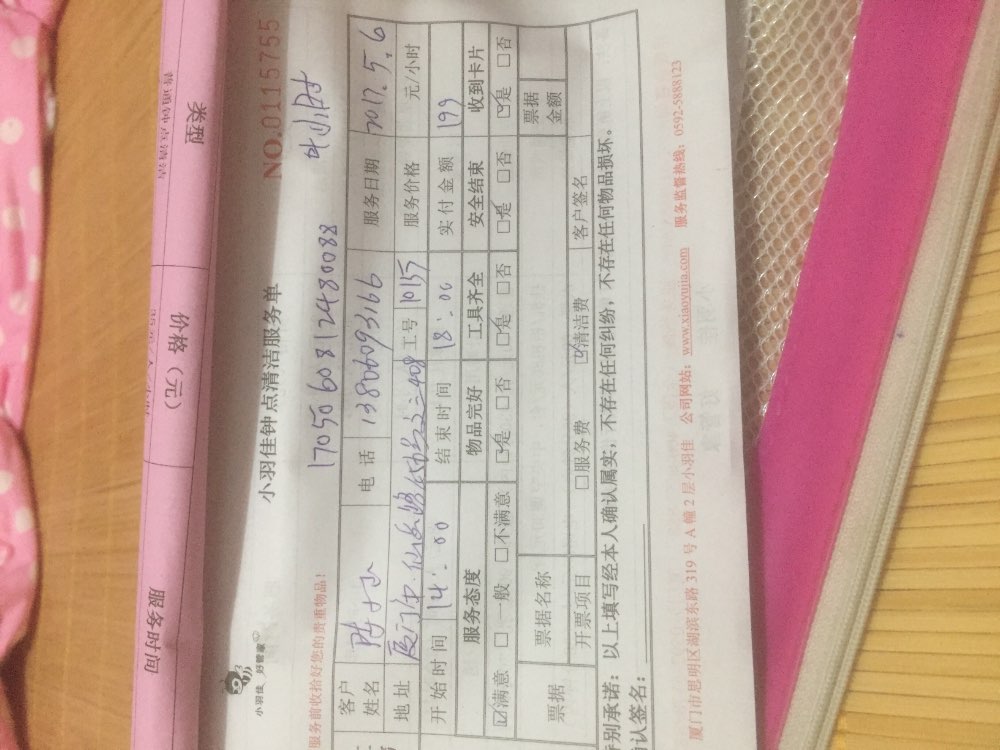 类型
价格（元）
服务时间
小羽佳 好管家
小羽佳钟点清洁服务单
NO.0115755
服务前收拾好您的贵重物品！
1705060812480088
客户姓名 电话 13806093166 服务日期 2017.5.6
地址 工号 10157 服务价格 元/小时
开始时间 14:00 结束时间 18:00 实付金额 199
服务态度 物品完好 工具齐全 安全结束 收到卡片
☑满意 □一般 □不满意 ☑是 □否 ☑是 □否 ☑是 □否 ☑是 □否
票据 票据名称 票据金额
开票项目 □服务费 ☑清洁费 客户签名
别承诺：以上填写经本人确认属实，不存在任何纠纷，不存在任何物品损坏。
认签名：
厦门市思明区湖滨东路319号A幢2层小羽佳 公司网站：www.xiaoyujia.com 服务监督热线：0592-5888123